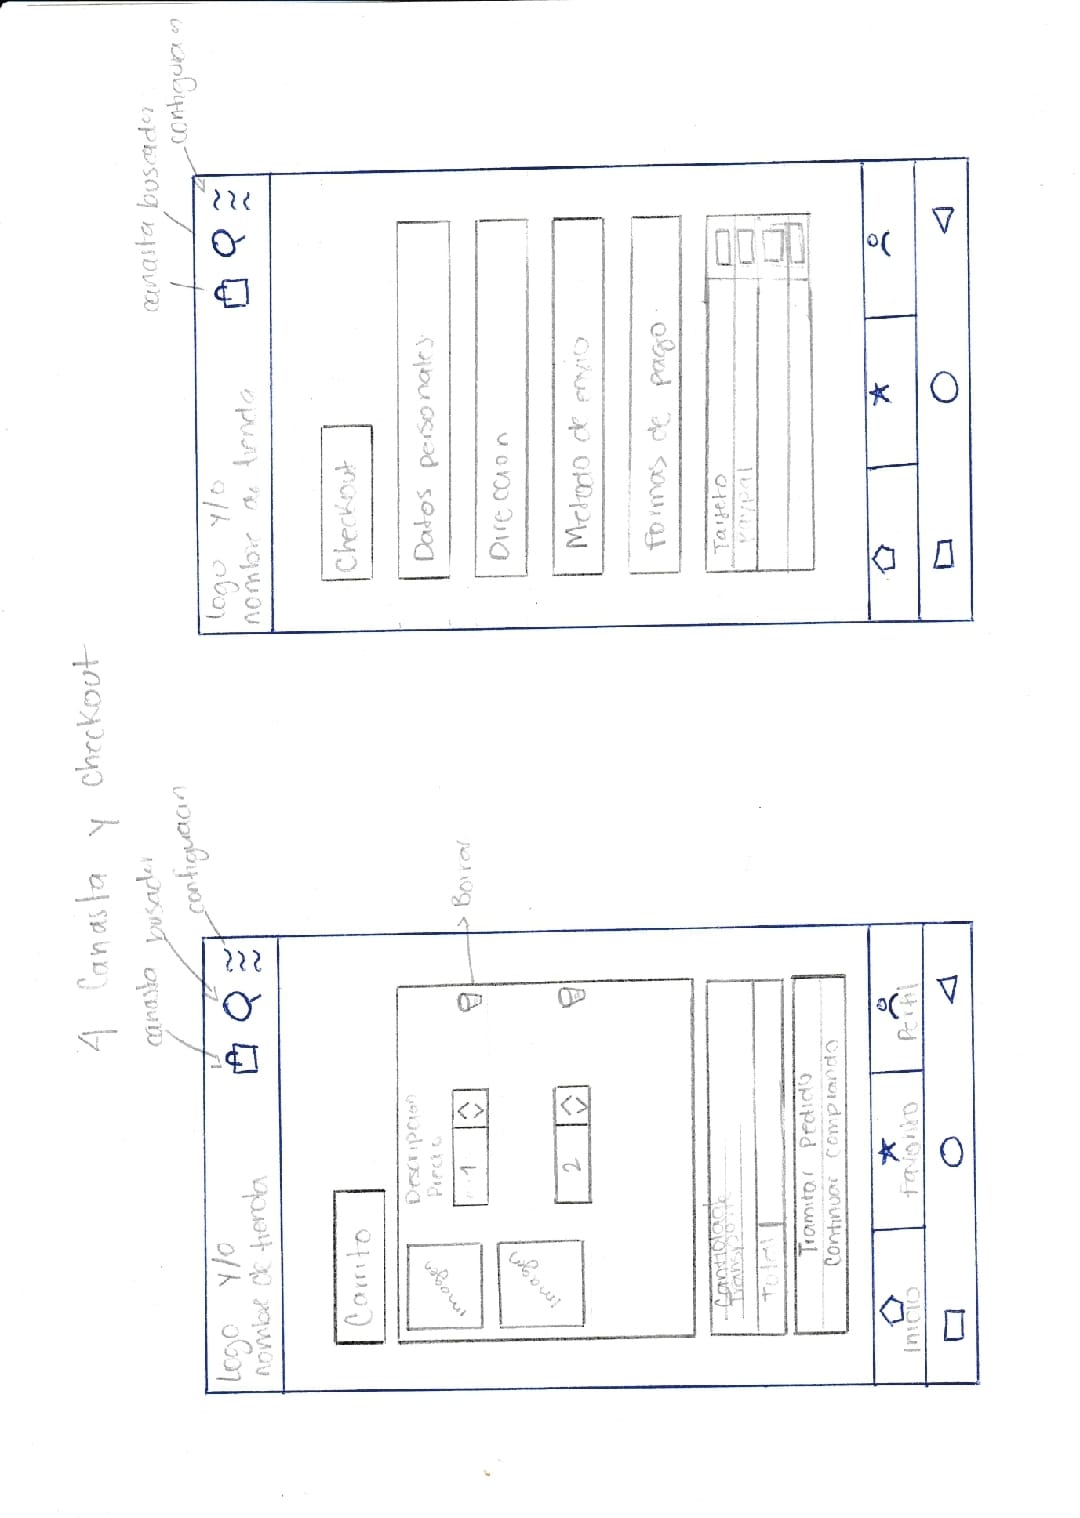 4 Canasta y checkout
canasta busador
configuracin
Logo y/o
nombre de tienda
Carrito
imagen
Descripcion
Precio
1
Borrar
imagen
2
Cantidad
Transporte
Total
Tramitar Pedido
Continuar comprando
Inicio
Favorito
Perfil
canasta buscador
Logo y/o
nombre de tienda
Checkout
Datos personales
Direccion
Metodo de envio
formas de pago
Tarjeta
Paypal